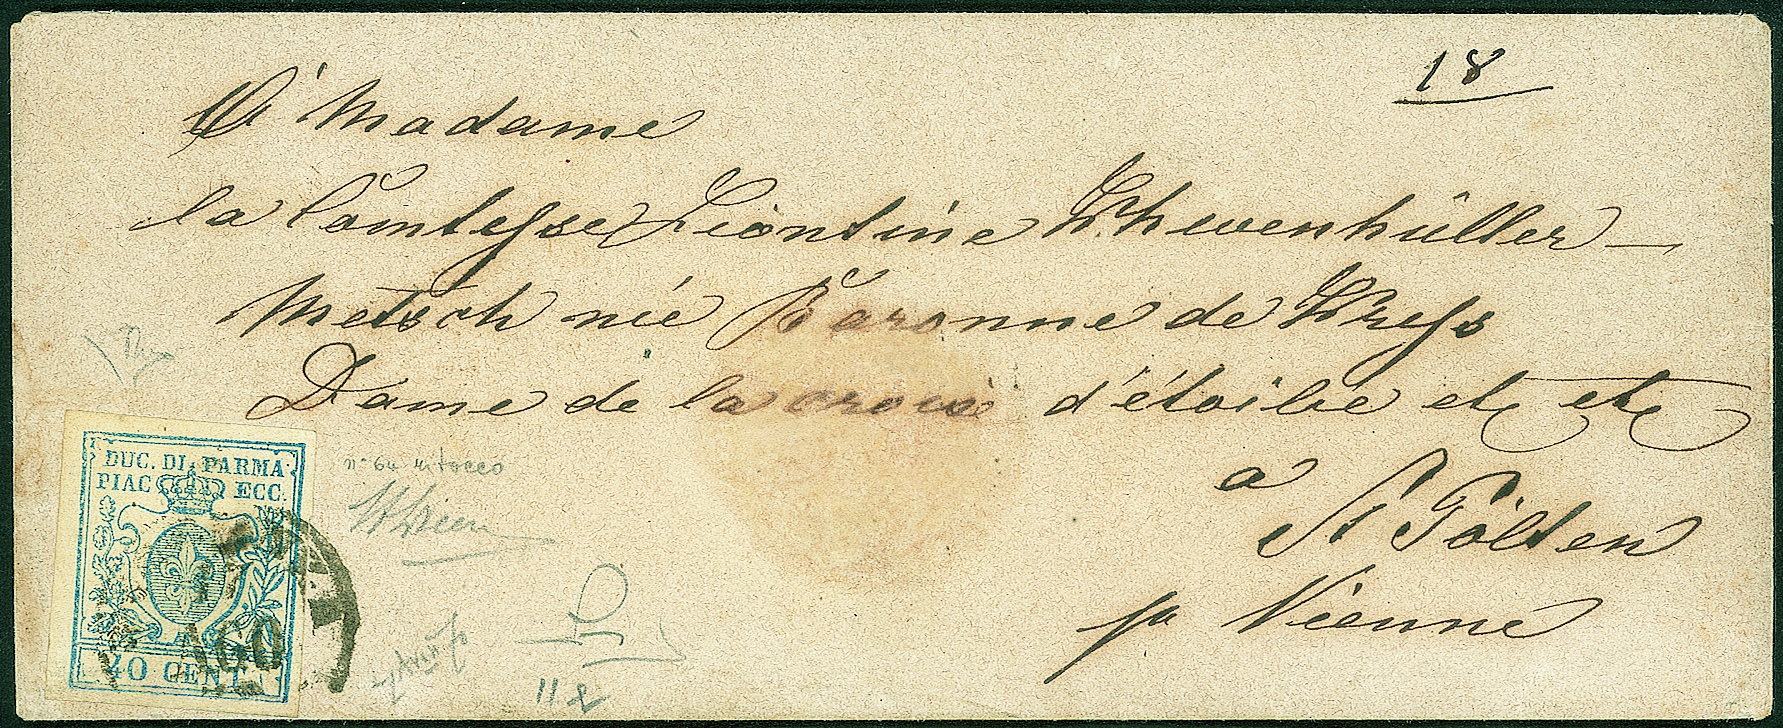 18
A Madame
la Comtesse Léontine Khevenhüller –
Metsch née Baronne de Kress
Dame de la croix d'étoilée etc etc
à
St Pölten
pr Vienne
DUC. DI PARMA
PIAC ECC.
40 CENT
n° 6a ritocco
11